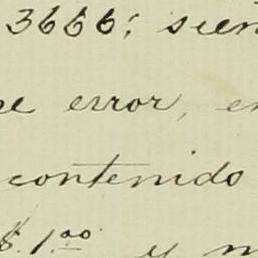 3666; sien
se error, en
contenido
$.1.00 y m